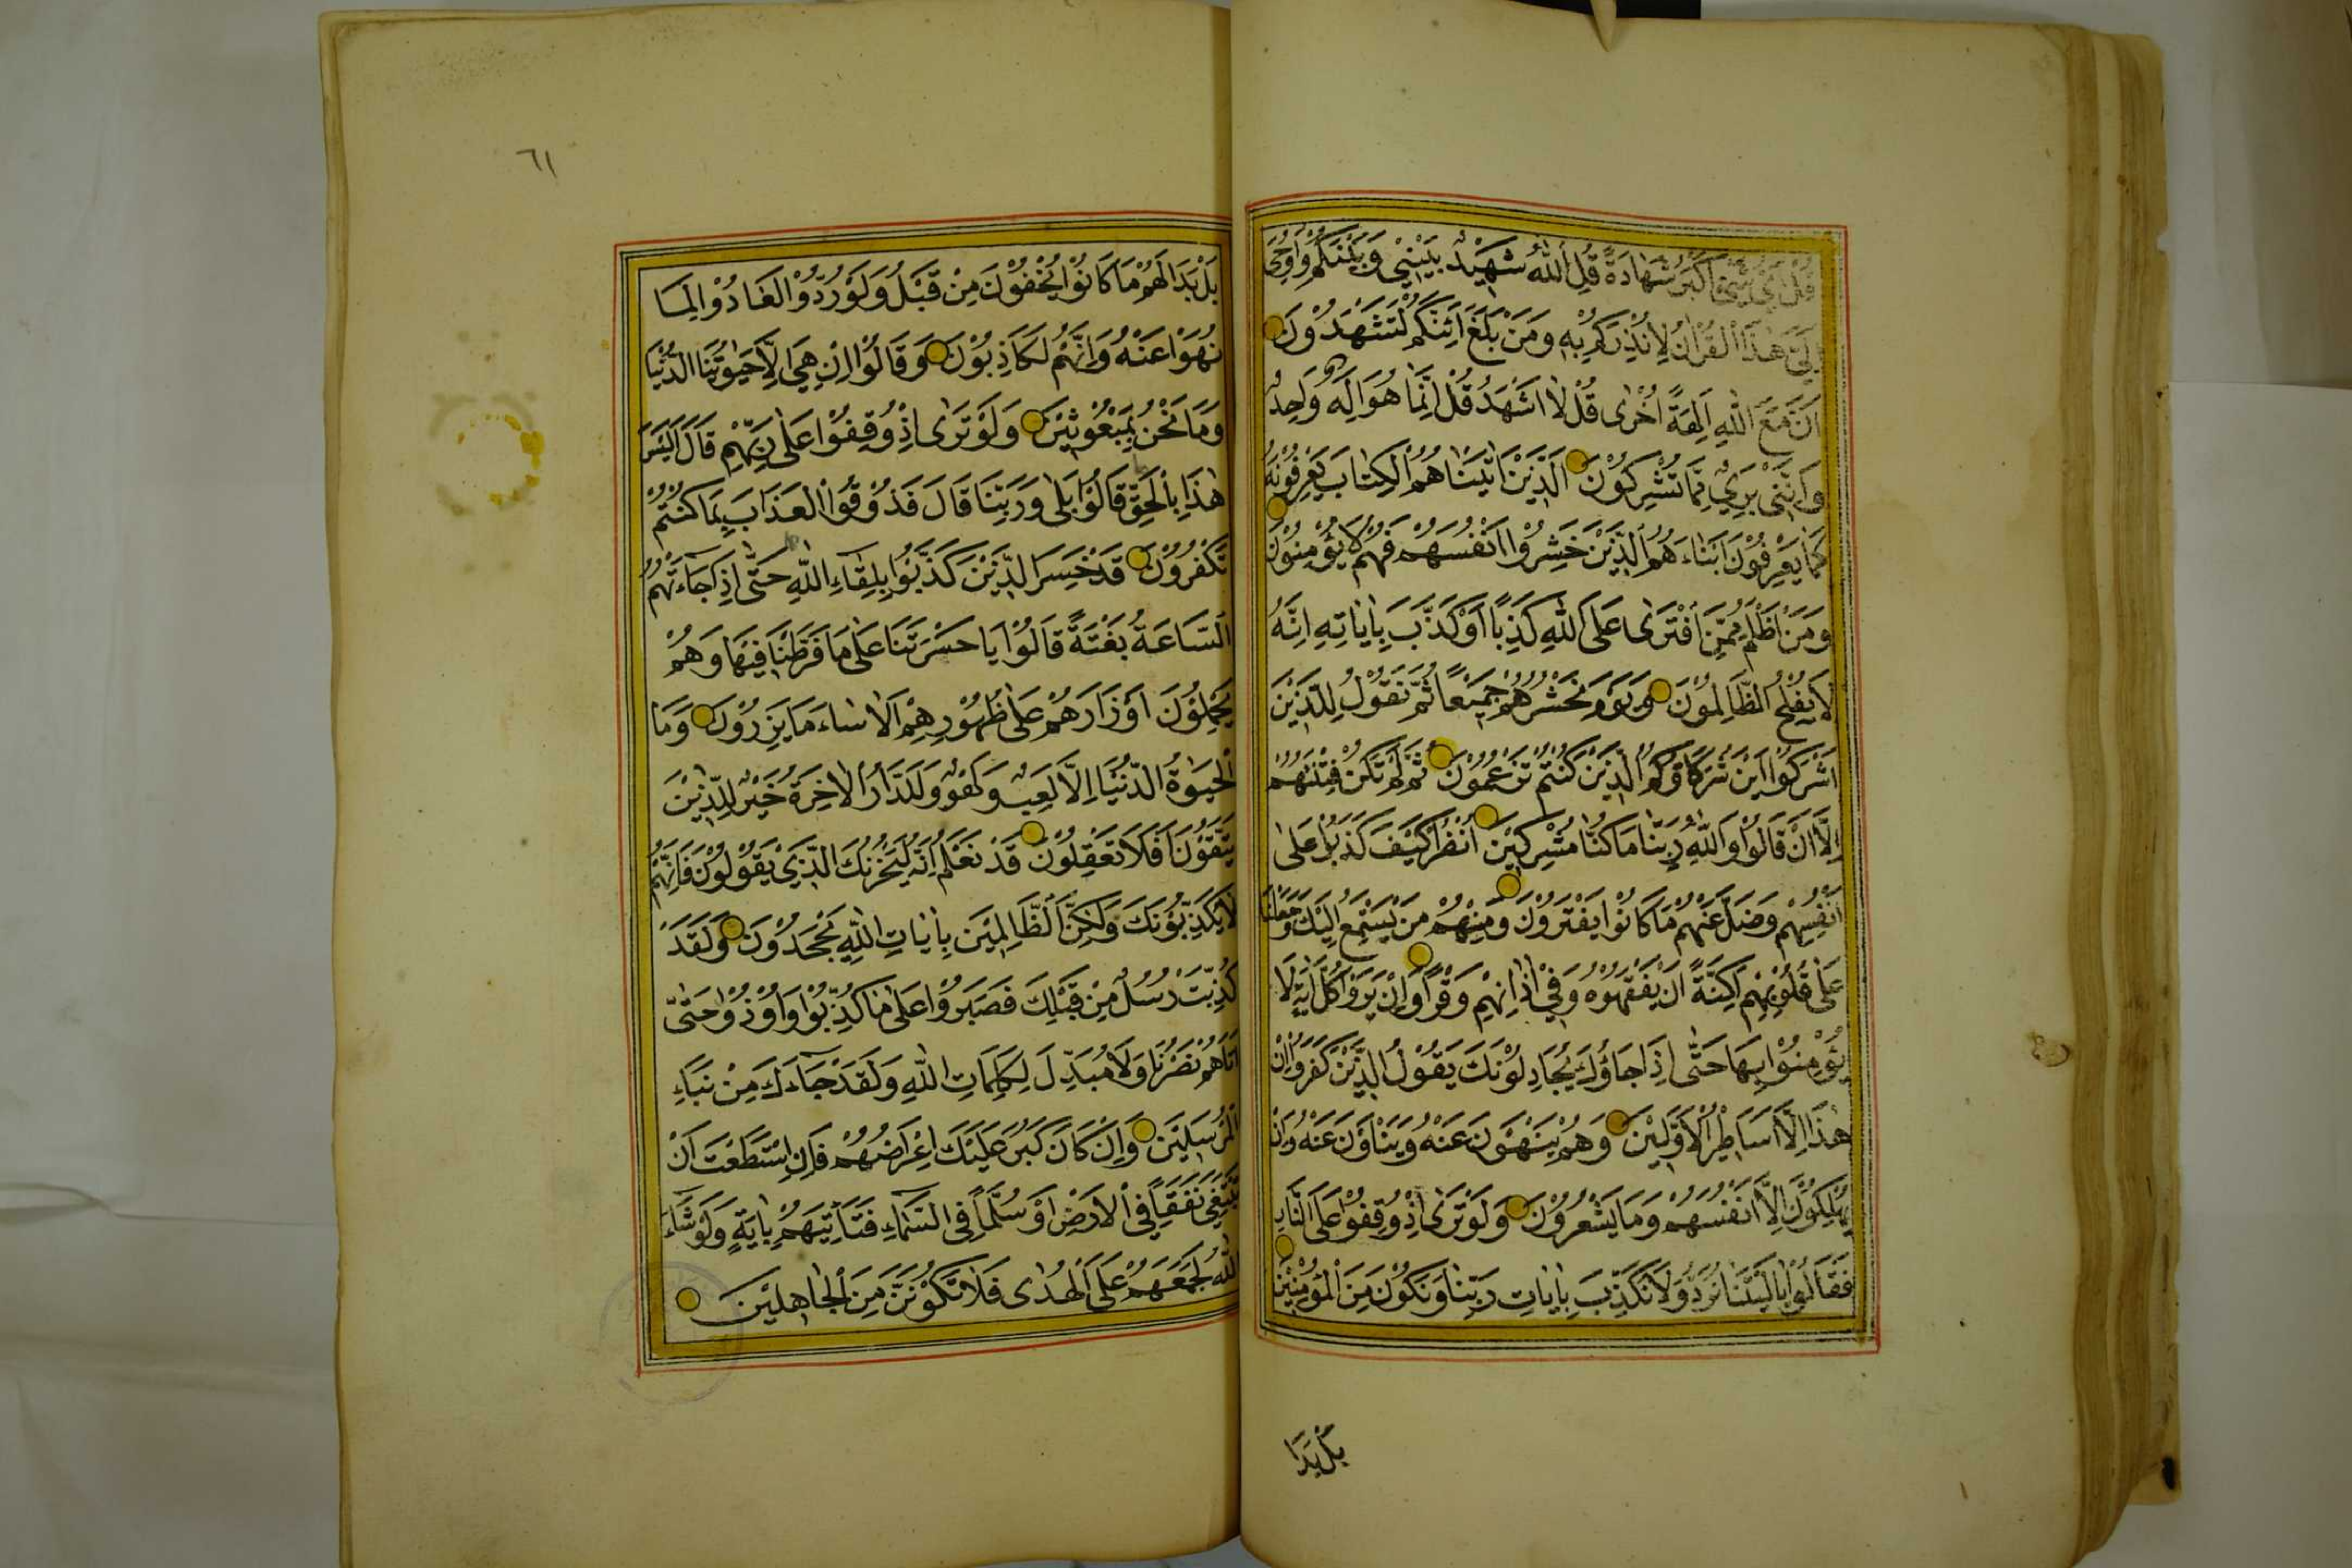 قُلْ اَيُّ شَيْءٍ اَكْبَرُ شَهَادَةً قُلِ اللّٰهُ شَهِيْدٌ بَيْنِيْ وَبَيْنَكُمْ وَاُوْحِيَ
اِلَيَّ هٰذَا الْقُرْاٰنُ لِاُنْذِرَكُمْ بِهٖ وَمَنْ بَلَغَ اَئِنَّكُمْ لَتَشْهَدُوْنَ
اَنَّ مَعَ اللّٰهِ اٰلِهَةً اُخْرٰى قُلْ لَا اَشْهَدُ قُلْ اِنَّمَا هُوَ اِلٰهٌ وَاحِدٌ
وَاِنَّنِي بَرِيْءٌ مِمَّا تُشْرِكُوْنَ اَلَّذِيْنَ اٰتَيْنَاهُمُ الْكِتَابَ يَعْرِفُوْنَهُ
كَمَا يَعْرِفُوْنَ اَبْنَاءَهُمُ الَّذِيْنَ خَسِرُوْا اَنْفُسَهُمْ فَهُمْ لَا يُؤْمِنُوْنَ
وَمَنْ اَظْلَمُ مِمَّنِ افْتَرٰى عَلَى اللّٰهِ كَذِبًا اَوْ كَذَّبَ بِاٰيَاتِهِ اِنَّهُ
لَا يُفْلِحُ الظَّالِمُوْنَ وَيَوْمَ نَحْشُرُهُمْ جَمِيْعًا ثُمَّ نَقُوْلُ لِلَّذِيْنَ
اَشْرَكُوْا اَيْنَ شُرَكَاؤُكُمُ الَّذِيْنَ كُنْتُمْ تَزْعُمُوْنَ ثُمَّ لَمْ تَكُنْ فِتْنَتُهُمْ
اِلَّا اَنْ قَالُوْا وَاللّٰهِ رَبِّنَا مَا كُنَّا مُشْرِكِيْنَ اُنْظُرْ كَيْفَ كَذَبُوْا عَلٰى
اَنْفُسِهِمْ وَضَلَّ عَنْهُمْ مَا كَانُوْا يَفْتَرُوْنَ وَمِنْهُمْ مَنْ يَسْتَمِعُ اِلَيْكَ وَجَعَلْنَا
عَلٰى قُلُوْبِهِمْ اَكِنَّةً اَنْ يَفْقَهُوْهُ وَفِيْ اٰذَانِهِمْ وَقْرًا وَاِنْ يَرَوْا كُلَّ اٰيَةٍ لَا
يُؤْمِنُوْا بِهَا حَتّٰى اِذَا جَاؤُكَ يُجَادِلُوْنَكَ يَقُوْلُ الَّذِيْنَ كَفَرُوْا اِنْ
هٰذَا اِلَّا اَسَاطِيْرُ الْاَوَّلِيْنَ وَهُمْ يَنْهَوْنَ عَنْهُ وَيَنْاَوْنَ عَنْهُ وَاِنْ
يُهْلِكُوْنَ اِلَّا اَنْفُسَهُمْ وَمَا يَشْعُرُوْنَ وَلَوْ تَرٰى اِذْ وُقِفُوْا عَلَى النَّارِ
فَقَالُوْا يَا لَيْتَنَا نُرَدُّ وَلَا نُكَذِّبَ بِاٰيَاتِ رَبِّنَا وَنَكُوْنَ مِنَ الْمُؤْمِنِيْنَ
بَلْ بَدَا
٦١
بَلْ بَدَا لَهُمْ مَا كَانُوْا يُخْفُوْنَ مِنْ قَبْلُ وَلَوْ رُدُّوْا لَعَادُوْا لِمَا
نُهُوْا عَنْهُ وَاِنَّهُمْ لَكَاذِبُوْنَ وَقَالُوْا اِنْ هِيَ اِلَّا حَيٰوتُنَا الدُّنْيَا
وَمَا نَحْنُ بِمَبْعُوْثِيْنَ وَلَوْ تَرٰى اِذْ وُقِفُوْا عَلٰى رَبِّهِمْ قَالَ اَلَيْسَ
هٰذَا بِالْحَقِّ قَالُوْا بَلٰى وَرَبِّنَا قَالَ فَذُوْقُوْا الْعَذَابَ بِمَا كُنْتُمْ
تَكْفُرُوْنَ قَدْ خَسِرَ الَّذِيْنَ كَذَّبُوْا بِلِقَاءِ اللّٰهِ حَتّٰى اِذَا جَاءَتْهُمُ
السَّاعَةُ بَغْتَةً قَالُوْا يَا حَسْرَتَنَا عَلٰى مَا فَرَّطْنَا فِيْهَا وَهُمْ
يَحْمِلُوْنَ اَوْزَارَهُمْ عَلٰى ظُهُوْرِهِمْ اَلَا سَاءَ مَا يَزِرُوْنَ وَمَا
الْحَيٰوةُ الدُّنْيَا اِلَّا لَعِبٌ وَلَهْوٌ وَلَلدَّارُ الْاٰخِرَةُ خَيْرٌ لِلَّذِيْنَ
يَتَّقُوْنَ اَفَلَا تَعْقِلُوْنَ قَدْ نَعْلَمُ اِنَّهُ لَيَحْزُنُكَ الَّذِيْ يَقُوْلُوْنَ فَاِنَّهُمْ
لَا يُكَذِّبُوْنَكَ وَلٰكِنَّ الظَّالِمِيْنَ بِاٰيَاتِ اللّٰهِ يَجْحَدُوْنَ وَلَقَدْ
كُذِّبَتْ رُسُلٌ مِنْ قَبْلِكَ فَصَبَرُوْا عَلٰى مَا كُذِّبُوْا وَاُوْذُوْا حَتّٰى
اَتَاهُمْ نَصْرُنَا وَلَا مُبَدِّلَ لِكَلِمَاتِ اللّٰهِ وَلَقَدْ جَاءَكَ مِنْ نَبَاءِ
الْمُرْسَلِيْنَ وَاِنْ كَانَ كَبُرَ عَلَيْكَ اِعْرَاضُهُمْ فَاِنِ اسْتَطَعْتَ اَنْ
تَبْتَغِيَ نَفَقًا فِي الْاَرْضِ اَوْ سُلَّمًا فِي السَّمَاءِ فَتَاْتِيَهُمْ بِاٰيَةٍ وَلَوْ شَاءَ
اللّٰهُ لَجَمَعَهُمْ عَلَى الْهُدٰى فَلَا تَكُوْنَنَّ مِنَ الْجَاهِلِيْنَ